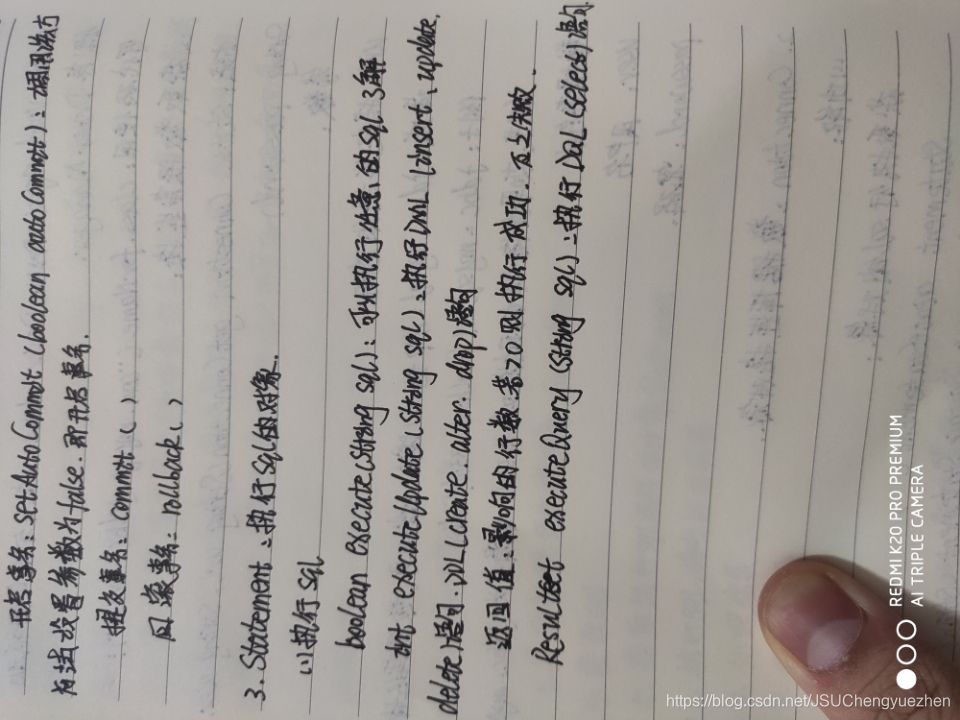 开启事务：setAutoCommit (boolean autoCommit)：调用该方
法设置参数为false，即开启事务.
提交事务：commit ( )
回滚事务：rollback( )
3. Statement：执行sql的对象.
(1) 执行sql
boolean execute(String sql)：可以执行任意的sql 了解
int executeUpdate (String sql)：执行DML (insert、update、
delete)语句. DDL(create. alter. drop)语句
返回值：影响的行数 若>0则执行成功. 反之失败.
Resultset executeQuery (String sql)：执行DQL (select) 语句
REDMI K20 PRO PREMIUM
AI TRIPLE CAMERA
https://blog.csdn.net/JSUChengyuezhen